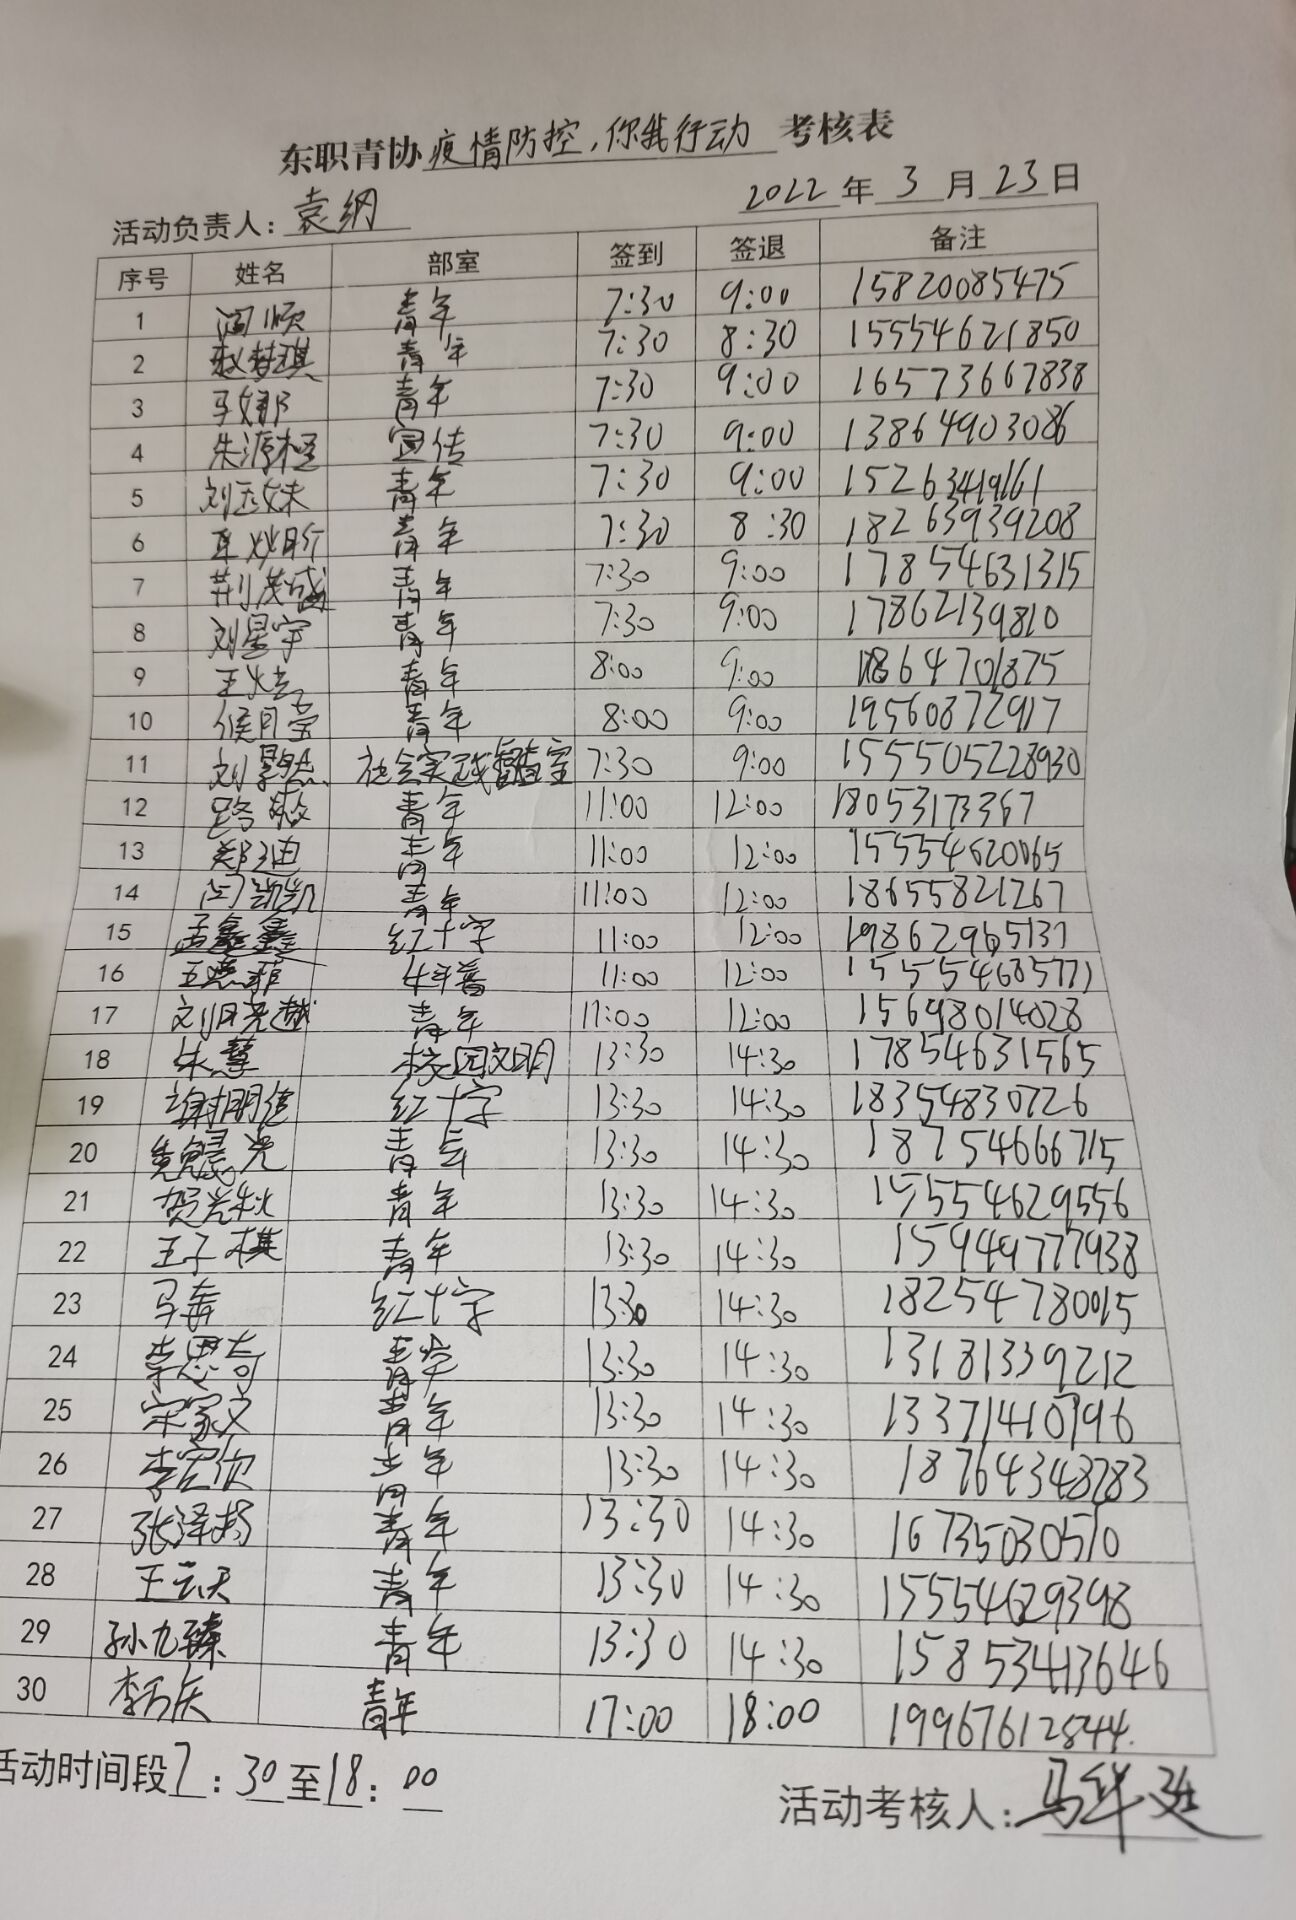 东职青协疫情防控，你我行动 考核表
活动负责人：袁纲 2022年3月23日
序号 姓名 部室 签到 签退 备注
1 阎顺 青年 7:30 9:00 15820085475
2 赵梦琪 青年 7:30 8:30 15554621850
3 马娜 青年 7:30 9:00 16573667838
4 朱源 宣传 7:30 9:00 13864903086
5 刘玉妹 青年 7:30 9:00 15263419161
6 青年 7:30 8:30 18263939208
7 荆茂盛 青年 7:30 9:00 17854631315
8 刘星宇 青年 7:30 9:00 17862139810
9 王 青年 8:00 9:00 1864701875
10 候月莹 青年 8:00 9:00 19560872917
11 刘 社会实践 室 7:30 9:00 1555505228930
12 路 青年 11:00 12:00 18053173367
13 郑迪 青年 11:00 12:00 15554620065
14 闫凯凯 青年 11:00 12:00 18655821267
15 孟鑫鑫 红十字 11:00 12:00 19862965137
16 王 菲 科普 11:00 12:00 15554685771
17 刘 越 青年 11:00 12:00 15698014028
18 朱慧 校园文明 13:30 14:30 17854631565
19 谢朋 红十字 13:30 14:30 18354830726
20 光 青年 13:30 14:30 18754666715
21 贺兰秋 青年 13:30 14:30 15554629556
22 王子棋 青年 13:30 14:30 15949777938
23 马 红十字 13:30 14:30 18254780015
24 李思奇 青年 13:30 14:30 13181339212
25 宋家文 青年 13:30 14:30 13371410796
26 李宏 青年 13:30 14:30 18764348783
27 张泽扬 青年 13:30 14:30 16735030510
28 王云天 青年 13:30 14:30 15554629398
29 孙九臻 青年 13:30 14:30 15853413646
30 李 庆 青年 17:00 18:00 19967612844.
活动时间段7：30至18：00
活动考核人：马华